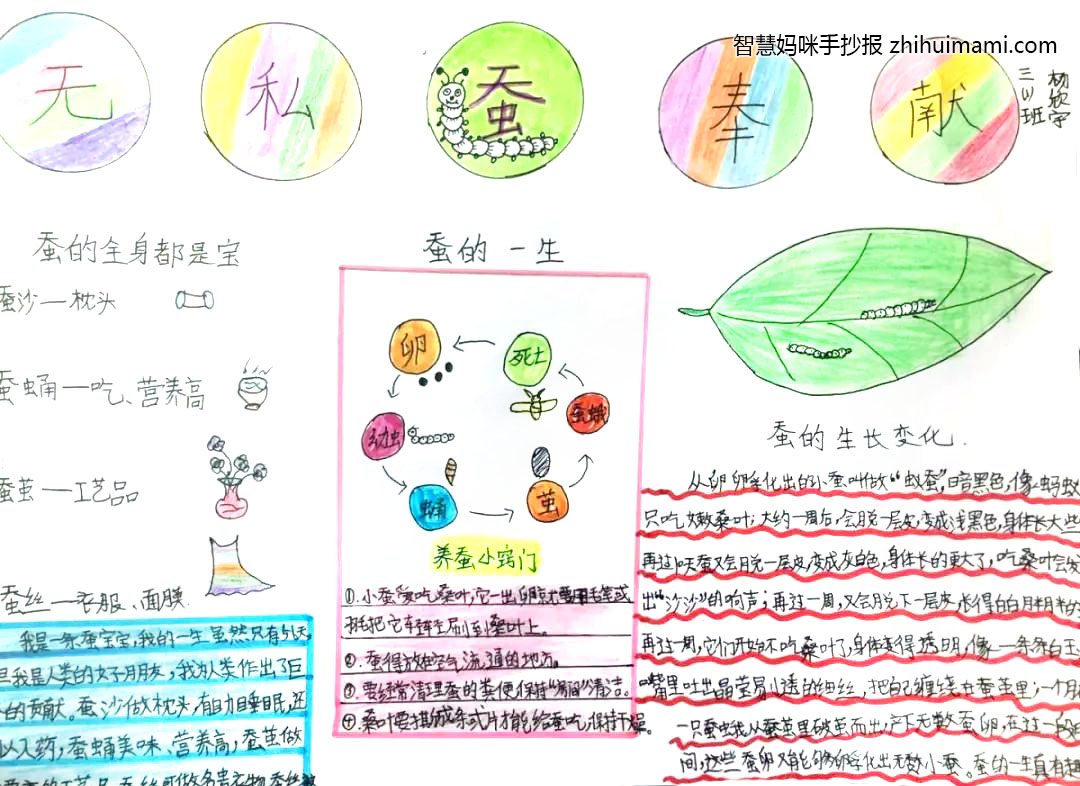 智慧妈咪手抄报 zhihuimami.com
无私蚕奉献
三(1)班
杨欣宇
蚕的全身都是宝
蚕沙—枕头
蚕蛹—吃、营养高
蚕茧—工艺品
蚕丝—衣服、面膜
我是一条蚕宝宝,我的一生虽然只有
是我是人类的好朋友,我为人类作出了巨
的贡献。蚕沙做枕头,有助睡眠,还
以入药,蚕蛹美味、营养高,蚕茧做
蚕的一生
卵
幼虫
蛹
茧
蚕蛾
死亡
养蚕小窍门
①.小蚕爱吃桑叶,它一出卵就要用毛笔或
羽毛把它轻轻刷到桑叶上。
②.蚕得放在空气流通的地方。
③要经常清理蚕的粪便保持"房间"清洁。
④.桑叶要擦成条或片才能给蚕吃,保持干燥。
蚕的生长变化.
从卵卵孵化出的小蚕叫做“蚁蚕”,暗黑色,像蚂蚁
只吃嫩桑叶;大约一周后,会脱一层皮,变成浅黑色,身体长大些
再过 天蚕又会脱一层皮变成灰白色,身体长的更大了,吃桑叶会发
出“沙沙”的响声;再过一周,又会脱下一层皮,长得白白胖胖的
再过一周,它们开始不吃桑叶了,身体变得透明,像一条条白玉
嘴里吐出晶莹易小透的细丝,把自己缠绕在蚕茧里;一个月
一只蚕虫我从蚕茧里破茧而出,产下无数蚕卵,在过一段
间,这些蚕卵又能够孵化出无数小蚕。蚕的一生真有趣